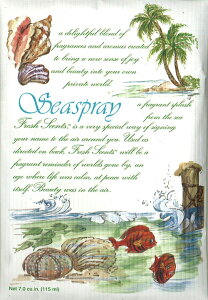 a delightful blend of
fragrances and aromas created
to bring a new sense of joy
and beauty into your own
private world.
Seaspray
a fragrant splash
from the sea
Fresh Scents™ is a very special way of signing
your name to the air around you. Used as
directed on back, Fresh Scents™ will be a
fragrant reminder of worlds gone by, an
age where life was calm, at peace with
itself. Beauty was in the air.
Net 7.0 cu.in. (115 ml)